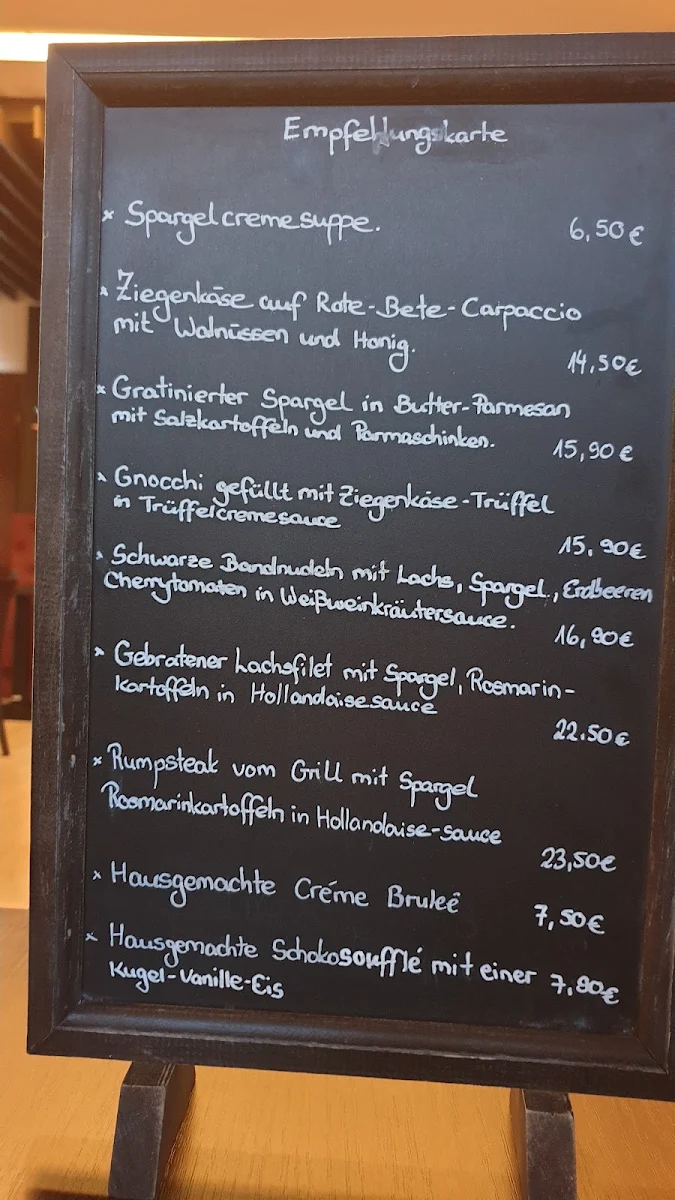 Empfehlungskarte
x Spargelcremesuppe. 6,50€
x Ziegenkäse auf Rote-Bete-Carpaccio
mit Walnüssen und Honig.
14,50€
x Gratinierter Spargel in Butter-Parmesan
mit Salzkartoffeln und Parmaschinken.
15,90€
x Gnocchi gefüllt mit Ziegenkäse-Trüffel
in Trüffelcremesauce
15,90€
x Schwarze Bandnudeln mit Lachs, Spargel, Erdbeeren
Cherrytomaten in Weißweinkräutersauce.
16,90€
x Gebratener Lachsfilet mit Spargel, Rosmarin-
kartoffeln in Hollandaisesauce
22.50€
x Rumpsteak vom Grill mit Spargel
Rosmarinkartoffeln in Hollandaise-sauce
23,50€
x Hausgemachte Créme Bruleê 7,50€
x Hausgemachte Schokosoufflé mit einer 7,90€
Kugel-Vanille-Eis